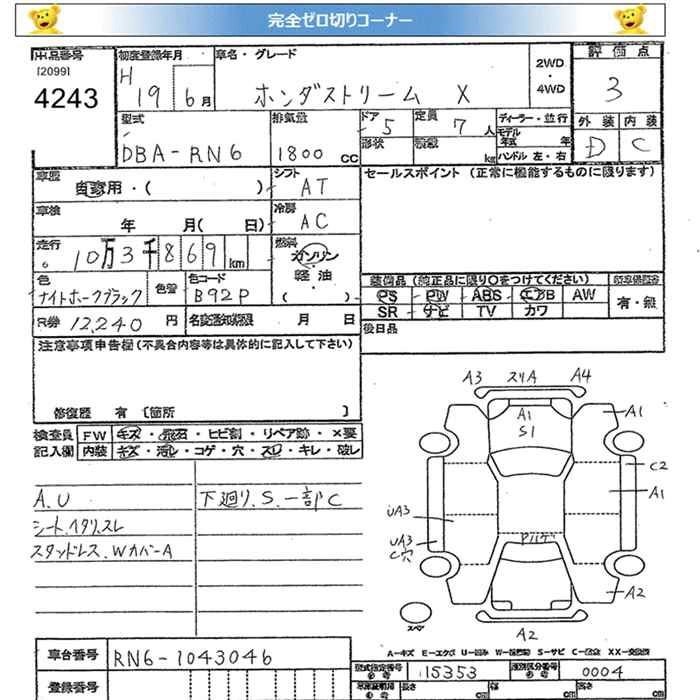 完全ゼロ切りコーナー
出品番号
[20991]
4243
初度登録年月
H 19 6月
車名・グレード
ホンダストリーム X
2WD
・
4WD
評価点
3
外装 内装
D C
型式
DBA-RN6
排気量
1800 CC
ドア 5
形状
定員 7 人
積載 kg
ディーラー・並行
モデル年式 年
ハンドル 左・右
車歴 自家用・( )
シフト AT
セールスポイント (正常に機能するものに限ります)
車検 年 月( 日)
冷房 AC
走行 10万3千869km
燃料 ガソリン
軽油
( )
色 ナイトホークブラック
色替
色コード B92P
装備品 (純正品に限り○をつけてください)
PS PW ABS エアB AW
SR ナビ TV カワ
有・無
R券 12,240 円
名変通知期限 月 日
後日品
注意事項申告欄 (不具合内容等は具体的に記入して下さい)
修復歴 有 [箇所 ]
検査員記入欄
FW キズ・飛石・ヒビ割・リペア跡・×要
内装 キズ・汚レ・コゲ・穴・スレ・キレ・破レ
A.U
シート.イタリ.スレ
スタッドレス.WカバーA
下廻り.S.一部C
A3 スリA A4
A1
S1
A1
C2
A1
UA3
UA3
C穴
A2
A2
スペア
A-キズ E-エクボ U-凹み S-サビ C-腐食 XX-交換済
車台番号 RN6-1043046
登録番号
型式指定番号 15353
類別区分番号 0004
長さ cm
幅 cm
高さ cm